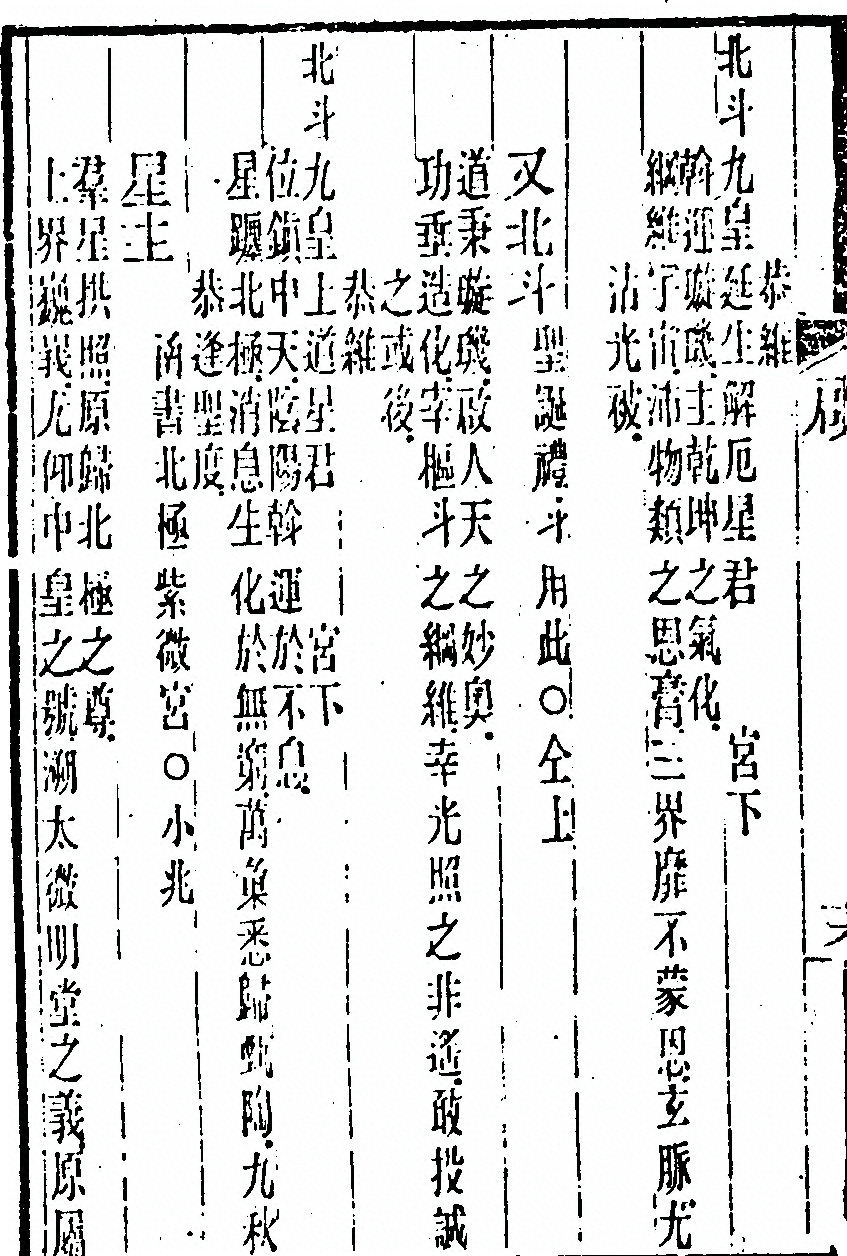 北斗九皇延生解厄星君　宮下
恭維
斡運璇璣主乾坤之氣化
綱維宇宙沛物類之恩膏三界靡不蒙恩玄脈尤
沾光破
又北斗聖誕禮斗用此○仝上
道秉璇璣啟人天之妙奧
功垂造化宰樞斗之綱維幸光照之非遙敢投誠
之或後
恭維
北斗九皇上道星君　宮下
位鎮中天陰陽斡運於不息
星躔北極消息生化於無窮萬彙悉歸甄陶九秋
恭逢聖度
星主函書北極紫微宮○小兆
羣星拱照原歸北極之尊
上界巍峩尤仰中皇之號溯太微明堂之義原屬